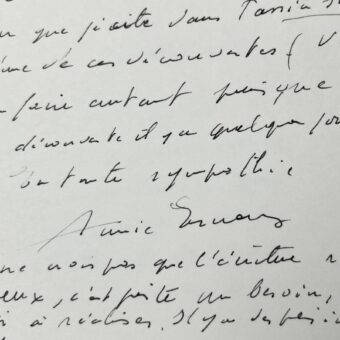 que j'ai cité dans Passion
de ces découvertes (V
faire autant puisque
découverte il y a quelques jou
toute sympathie
Annie Ernaux
ne crois pas que l'écriture
eux, c'est peut un besoin,
à réaliser. Il y a des péri